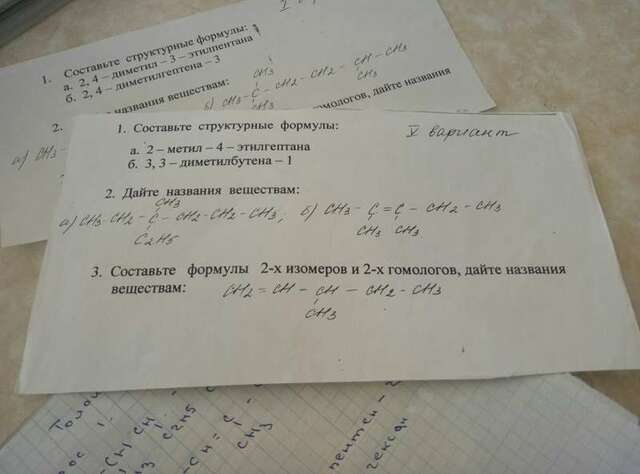 1. Составьте структурные формулы:
а. 2, 4 – диметил – 3 – этилпентана
б. 2, 4 – диметилгептена – 3
2.
названия веществам:
а) CH3-
CH3
б) CH3 - C - CH2 - CH2 - CH - CH3
CH3 CH3
гомологов, дайте названия
V вариант
1. Составьте структурные формулы:
а. 2 – метил – 4 – этилгептана
б. 3, 3 – диметилбутена – 1
2. Дайте названия веществам:
CH3
а) CH3-CH2 - C - CH2-CH2-CH3; б) CH3 - C = C - CH2 - CH3
C2H5 CH3 CH3
3. Составьте формулы 2-х изомеров и 2-х гомологов, дайте названия
веществам: CH2 = CH - CH - CH2 - CH3
CH3